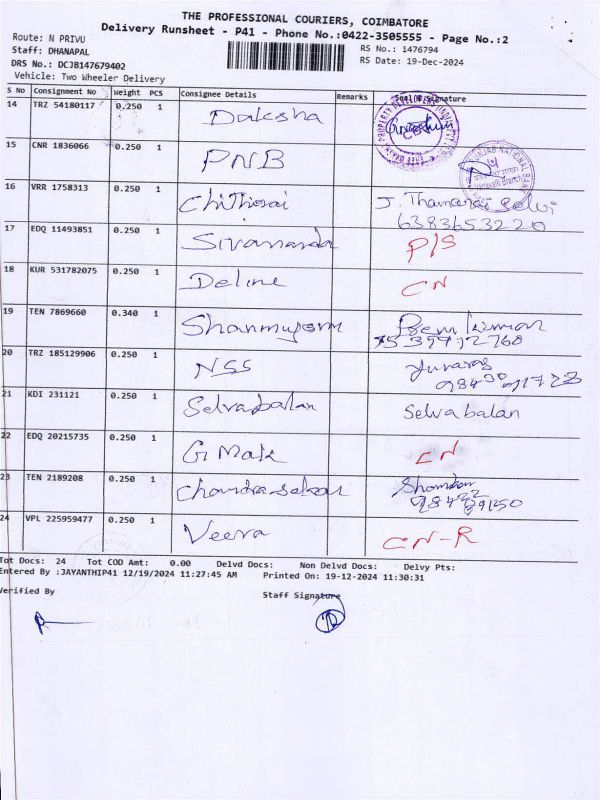 THE PROFESSIONAL COURIERS, COIMBATORE
Delivery Runsheet - P41 - Phone No.:0422-3505555 - Page No.:2
Route: N PRIVU
RS No.: 1476794
Staff: DHANAPAL
RS Date: 19-Dec-2024
DRS No.: DCJB147679402
Vehicle: Two Wheeler Delivery
S No Consignment No Weight PCS Consignee Details Remarks Seal & Signature
14 TRZ 54180117 0.250 1 Daksha
15 CNR 1836066 0.250 1 PNB
PUNJAB NATIONAL BANK
16 VRR 1758313 0.250 1 Chithirai J. Thamarai Selvi
6383653220
17 EDQ 11493851 0.250 1 Sivananda P/S
18 KUR 531782075 0.250 1 Deline CN
19 TEN 7869660 0.340 1 Shanmugam Prem kumar
20 TRZ 185129906 0.250 1 NSS Yuvaraj
21 KDI 231121 0.250 1 Selvabalan Selvabalan
22 EDQ 20215735 0.250 1 G Mak CN
23 TEN 2189208 0.250 1 Chandrasekar
24 VPL 225959477 0.250 1 Veera CN-R
Tot Docs: 24 Tot COD Amt: 0.00 Delvd Docs: Non Delvd Docs: Delvy Pts:
Entered By :JAYANTHIP41 12/19/2024 11:27:45 AM Printed On: 19-12-2024 11:30:31
Verified By Staff Signature